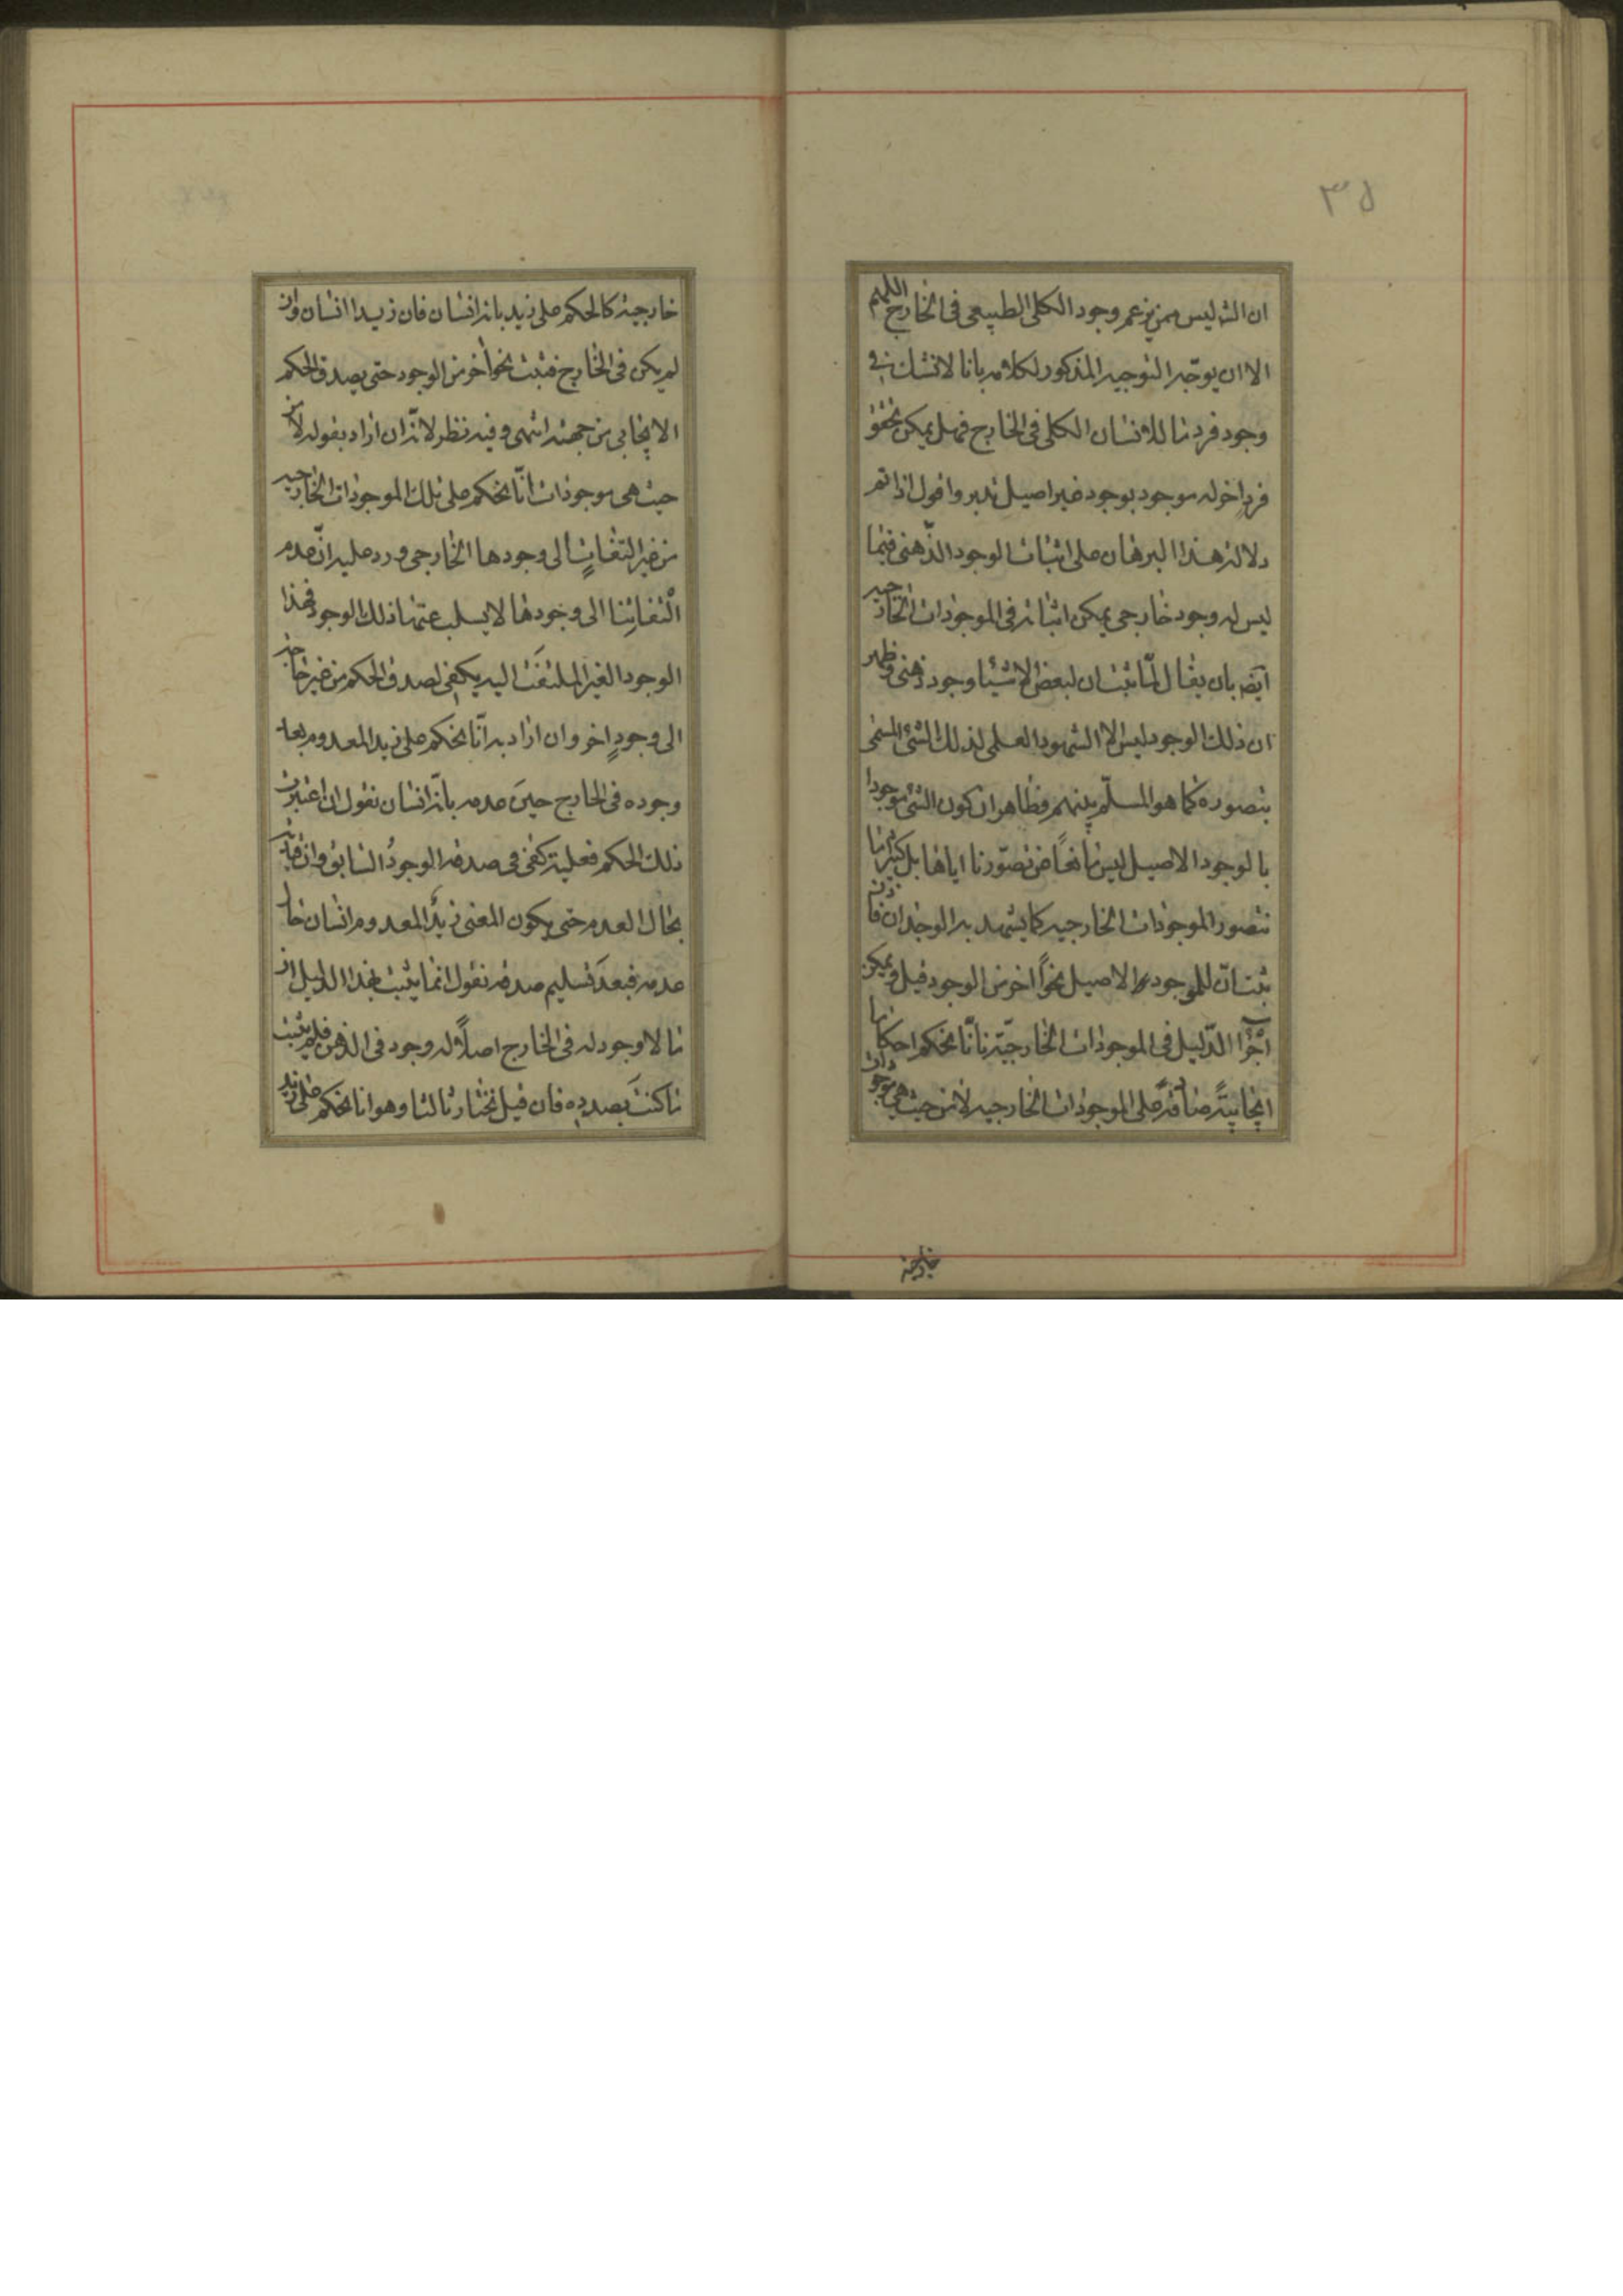 ٣٥
ان الش ليس ممن يزعم وجود الكلى الطبيعى فى الخارج اللهم
الا ان يوجّه التوجيه المذكور لكلامه بانا لا نشك فى
وجود فرد ما للانسان الكلى فى الخارج فهل يمكن تحقق
فردٍ اخر له موجود بوجود غير اصيل تدبر واقول اذا تم
دلالة هذا البرهان على اثبات الوجود الذّهنى فيما
ليس له وجود خارجى يمكن اثباته فى الموجودات الخارجيه
ايضه بان يقال لمّا ثبت ان لبعض الاشيا وجود ذهنى وظهر
ان ذلك الوجود ليس الا الشهود العلمى لذلك الشئ المسمى
بتصوره كما هو المسلّم بينهم وظاهر ان كون الشئ موجودا
بالوجود الاصيل ليس مانعًا عن تصوّرنا اياها بل كثيرا ما
نتصور الموجودات الخارجيه كما يشهد به الوجدان فاذن
ثبت انّ للموجود الاصيل نحوًا اخر من الوجود قيل ويمكن
اجرا الدّليل فى الموجودات الخارجيّة بانّا نحكم احكاما
ايجابيّةً صادقةً على الموجودات الخارجيه لا من حيث هى موجودات
خارجية
خارجية كالحكم على زيد بانه انسان فان زيدا انسان وان
لم يكن فى الخارج فثبت نحوا اخر من الوجود حتى يصدق الحكم
الايجابى من جهته انتهى وفيه نظر لانّه ان اراد بقوله لا من
حيث هى موجودات انّا نحكم على تلك الموجودات الخارجيه
من غير التفاتٍ الى وجودها الخارجى ورد عليه انّ عدم
الْتفاتِنا الى وجودها لا يسلب عنها ذلك الوجود فهذا
الوجود الغير الملتفَت اليه يكفى لصدق الحكم من غير حاجة
الى وجودٍ اخر وان اراد به انّا نحكم على زيد المعدوم بعد
وجوده فى الخارج حينَ عدمه بانّه انسان نقول ان اعتبرت
ذلك الحكم فعلية كفى فى صدقه الوجودُ السابق وان
بحال العدم حتى يكون المعنى زيدٌ المعدوم انسان حال
عدمه فبعدَ تسليم صدقه نقول انما يثبت بهذا الدليل ان
ما لا وجود له فى الخارج اصلاً له وجود فى الذهن فلم يثبت
ما كنتَ بصددِه فان قيل نختار ثالثا وهو انا نحكم على زيد